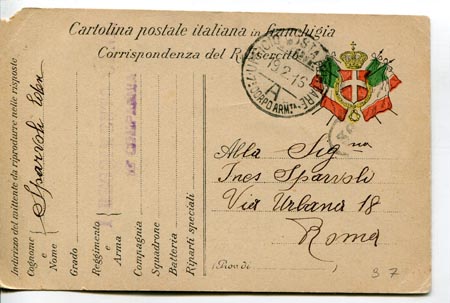 Cartolina postale italiana in franchigia
Corrispondenza del R. esercito
UFFICIO POSTA MILITARE
19.2.16
A
CORPO ARM.TA
Alla Sig.na
Ines Sparvoli
Via Urbana 18
Roma
(Prov. di
37
Indirizzo del mittente da riprodurre nelle risposte
Cognome e Nome Sparvoli
Grado
Reggimento e Arma
Compagnia
Squadrone
Batteria
Riparti speciali